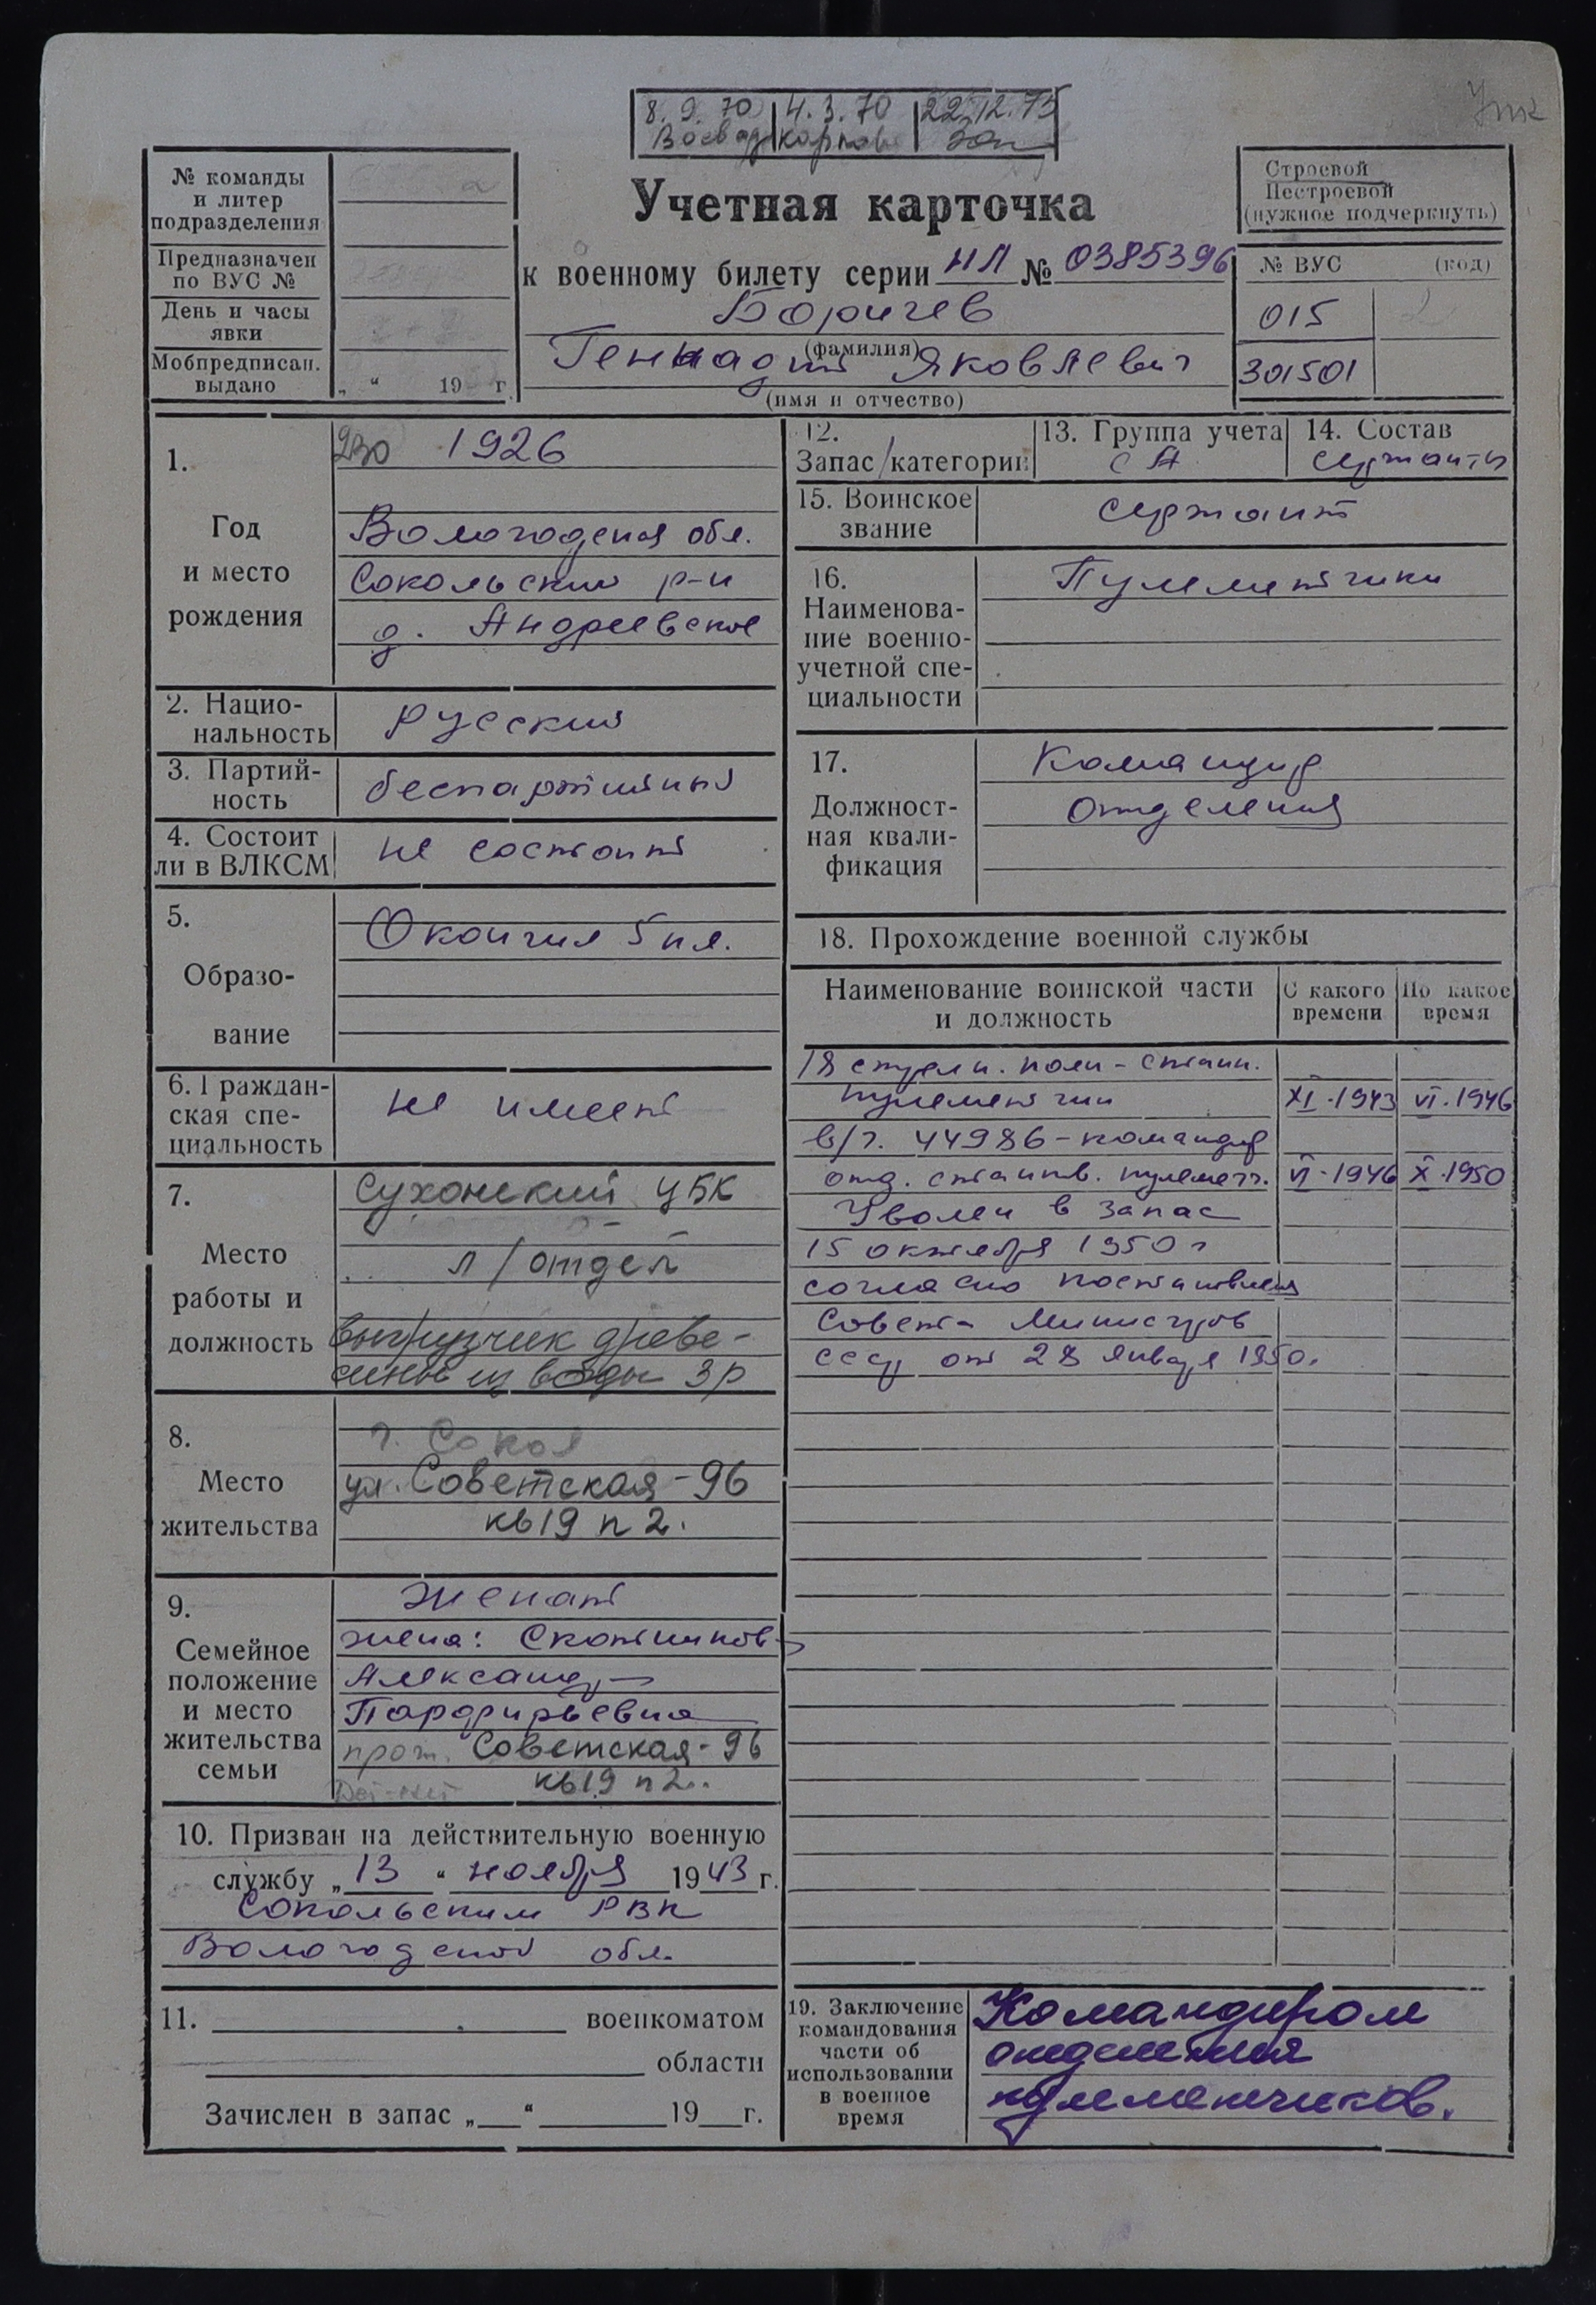 8.9.70 4.3.70 22.12.75
№ команды
и литер
подразделения
Предназначен
по ВУС №
День и часы
явки
Мобпредписан.
выдано
„ “ 19 г.
Учетная карточка
к военному билету серии НЛ № 0385396
Боричев
(фамилия)
Геннадий Яковлевич
(имя и отчество)
Строевой
Нестроевой
(нужное подчеркнуть)
№ ВУС (код)
015
301501
1.
Год
и место
рождения
1926
Вологодская обл.
Сокольский р-н
д. Андреевское
2. Нацио-
нальность
Русский
3. Партий-
ность
беспартийный
4. Состоит
ли в ВЛКСМ
не состоит
5.
Образо-
вание
Окончил 5 кл.
6. Граждан-
ская спе-
циальность
не имеет
7.
Место
работы и
должность
Сухонский ЦБК
л/отдел
выгрузчик древе-
сины из воды 3р
8.
Место
жительства
г. Сокол
ул. Советская-96
кв 19 п 2.
9.
Семейное
положение
и место
жительства
семьи
Женат
жена: Скотникова
Александра
Парфирьевна
прож. Советская-96
кв 19 п 2.
10. Призван на действительную военную
службу „13“ ноября 1943 г.
Сокольским РВК
Вологодской обл.
11. военкоматом
области
Зачислен в запас „ “ 19 г.
12.
Запас/категории
13. Группа учета
СА
14. Состав
сержанты
15. Воинское
звание
сержант
16.
Наименова-
ние военно-
учетной спе-
циальности
Пулеметчики
17.
Должност-
ная квали-
фикация
Командир
отделения
18. Прохождение военной службы
Наименование воинской части
и должность
С какого
времени
По какое
время
18 стрелк. полк - станк.
пулеметчик XI.1943 VI.1946
в/ч. 44986 - командир
отд. станков. пулемет. VI.1946 X.1950
Уволен в запас
15 октября 1950 г
согласно постановления
Совета Министров
СССР от 28 января 1950.
19. Заключение
командования
части об
использовании
в военное
время
Командиром
отделения
пулеметчиков.